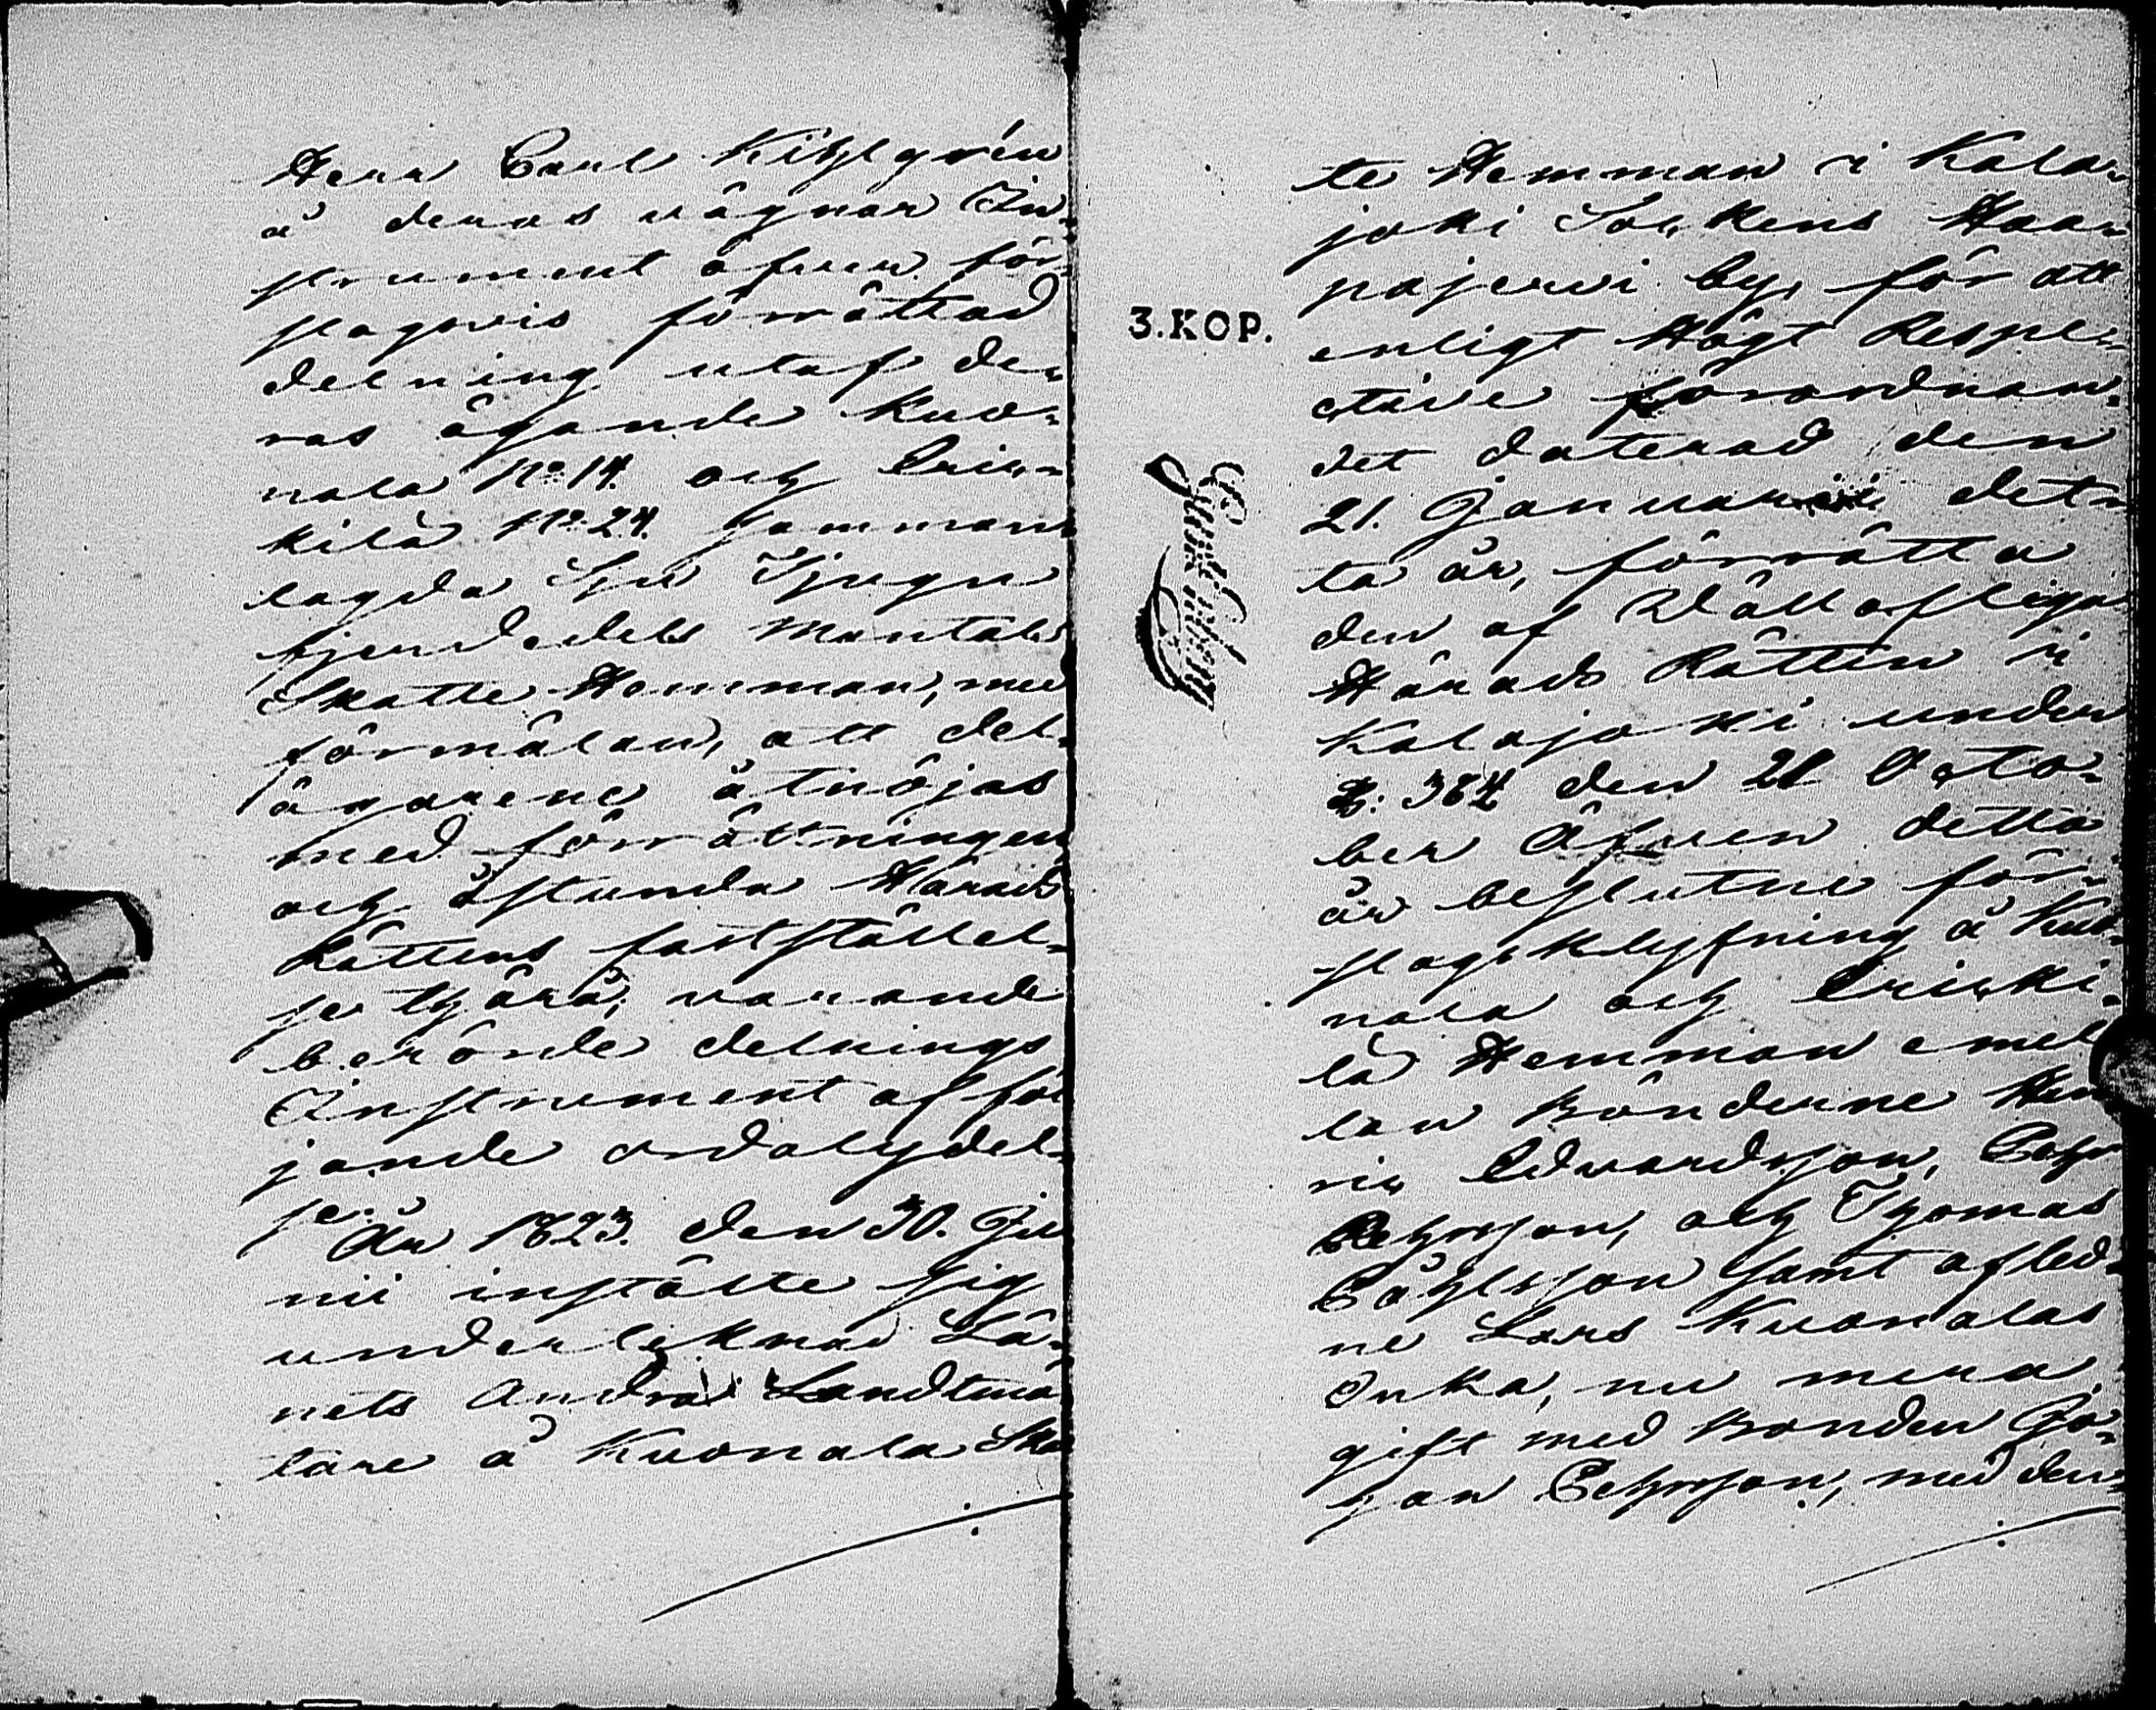 Herr Carl Kihlgrén
å deras vägnar In-
strument öfver för-
slagsvis förrättad
delning utaf de-
ras ägande Kuo-
nala No. 14. och Eric-
kilä No. 24. samman-
lagda Sju Tjugu
fjerdedels Mantals
Skatte Hemman, med
förmälan, att del-
ägarene åtnöjas
med förrättningen
och åstunda Härads
Rättens fastställel-
se thjärå; varande
berörde delnings
Instrument af föl
jande ordalydel-
se.
År 1823. den 30. Ju
nii instälte sig
underteknad Lä-
nets Andra Landtmä
tare å Kuonala Skat
3.KOP.
te Hemman i Kala-
joki Sockens Haa-
pajervi by, för att
enligt Högt Respe-
ctive förordnan-
det daterad den
21. Januarii det-
ta år, förrätta
den af Vällofliga
Härads Rätten i
Kalajoki under
§: 384 den 21 Octo-
ber Äfven detta
år beslutne för-
slagsklyfning å Kuo-
nala och Ericki-
lä Hemman emel
lan Bönderne Hen
ric Edvardsson, Pehr
Pehrsson, och Thomas
Påhlsson samt afled-
ne Lars Kuonalas
Enka, nu mera
gift med Bonden Gö-
ran Pehrsson, med den-